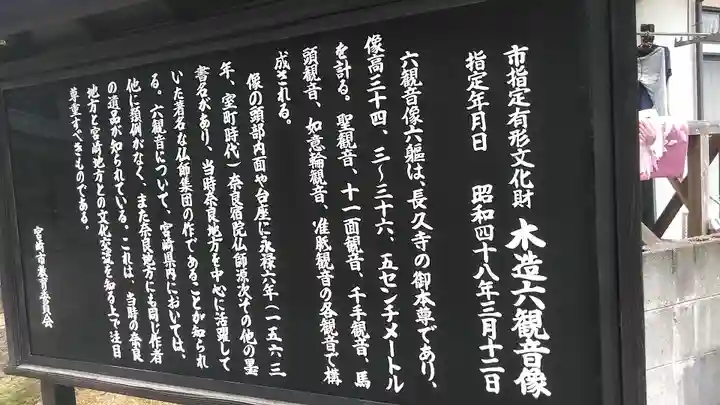 市指定有形文化財 木造六観音像
指定年月日 昭和四十八年三月十二日
六観音像六軀は、長久寺の御本尊であり、
像高三十四、三〜三十六、五センチメートル
を計る。聖観音、十一面観音、千手観音、馬
頭観音、如意輪観音、准胝観音の各観音で構
成される。
像の頭部内面や台座に永禄六年(一五六三
年、室町時代)奈良宿院仏師源次その他の墨
書名があり、当時奈良地方を中心に活躍して
いた著名な仏師集団の作であることが知られ
る。六観音について、宮崎県内においては、
他に類例がなく、また奈良地方にも同じ作者
の遺品が知られている。これは、当時の奈良
地方と宮崎地方との文化交流を知る上で注目
尊重すべきものである。
宮崎市教育委員会